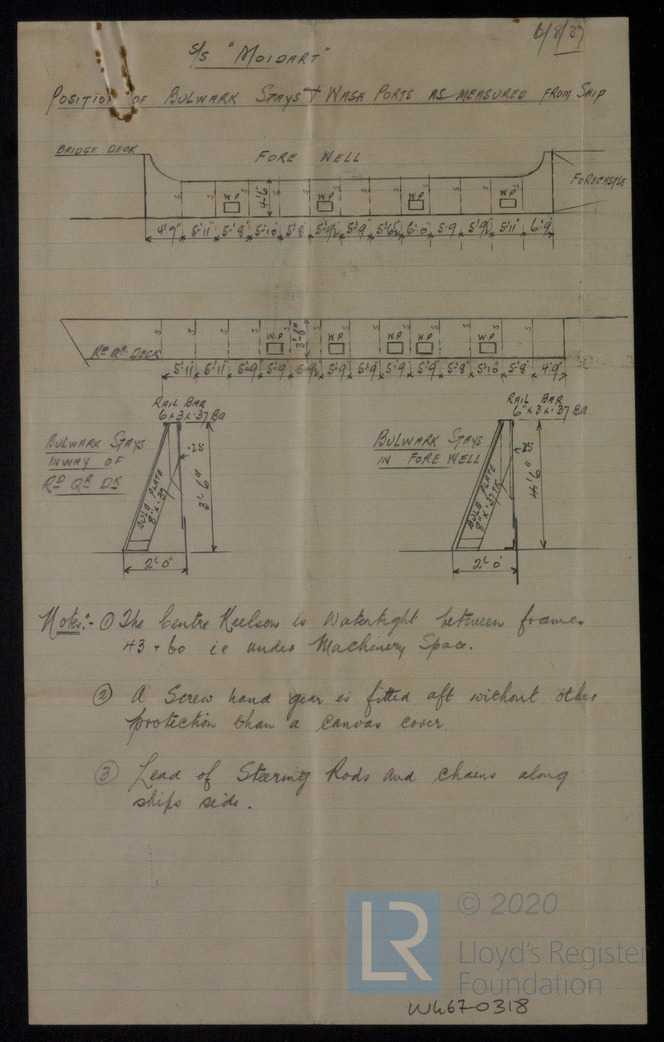 6/8/37
S/S "MOIDART"
POSITION OF BULWARK STAYS & WASH PORTS AS MEASURED FROM SHIP
BRIDGE DECK
FORE WELL
FORECASTLE
S S S S S S S S S
WP WP WP WP
4'6"
4'9" 5'11" 5'8" 5'10" 5'8 5'9½ 5'9 6'0" 5'9 5'9½ 5'11" 6'9"
S S S S S S S
WP WP WP WP WP
3'-6"
RD QR DECK
5'11 5'11 5'9 5'9 5'9 5'9 5'9 5'8" 5'10 5'8 4'9"
RAIL BAR
6 x 3 x .37 BA
BULWARK STAYS
INWAY OF
RD QR DK
BULB PLATE
8" x .37
3'-6"
2'-0"
RAIL BAR
6" x 3 x .37 BA
BULWARK STAYS
IN FORE WELL
BULB PLATE
8" x .37
4'6"
2'-0"
Notes:- ① The Centre Keelson is Watertight between frames
43 + 60 ie under Machinery Space.
② A Screw hand gear is fitted aft without other
protection than a canvas cover.
③ Lead of Steering Rods and chains along
ships side.
LR
© 2020
Lloyd's Register
Foundation
W467-0318